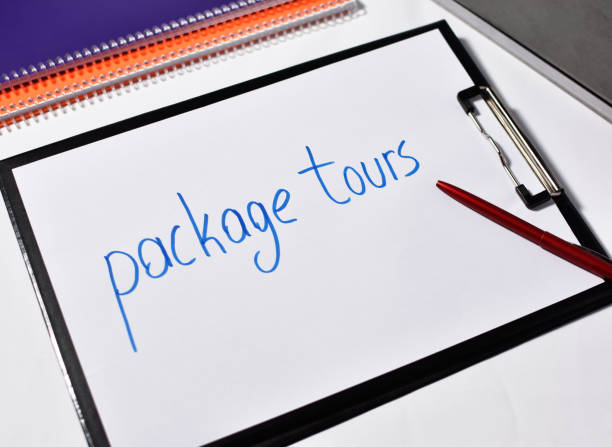 package tours